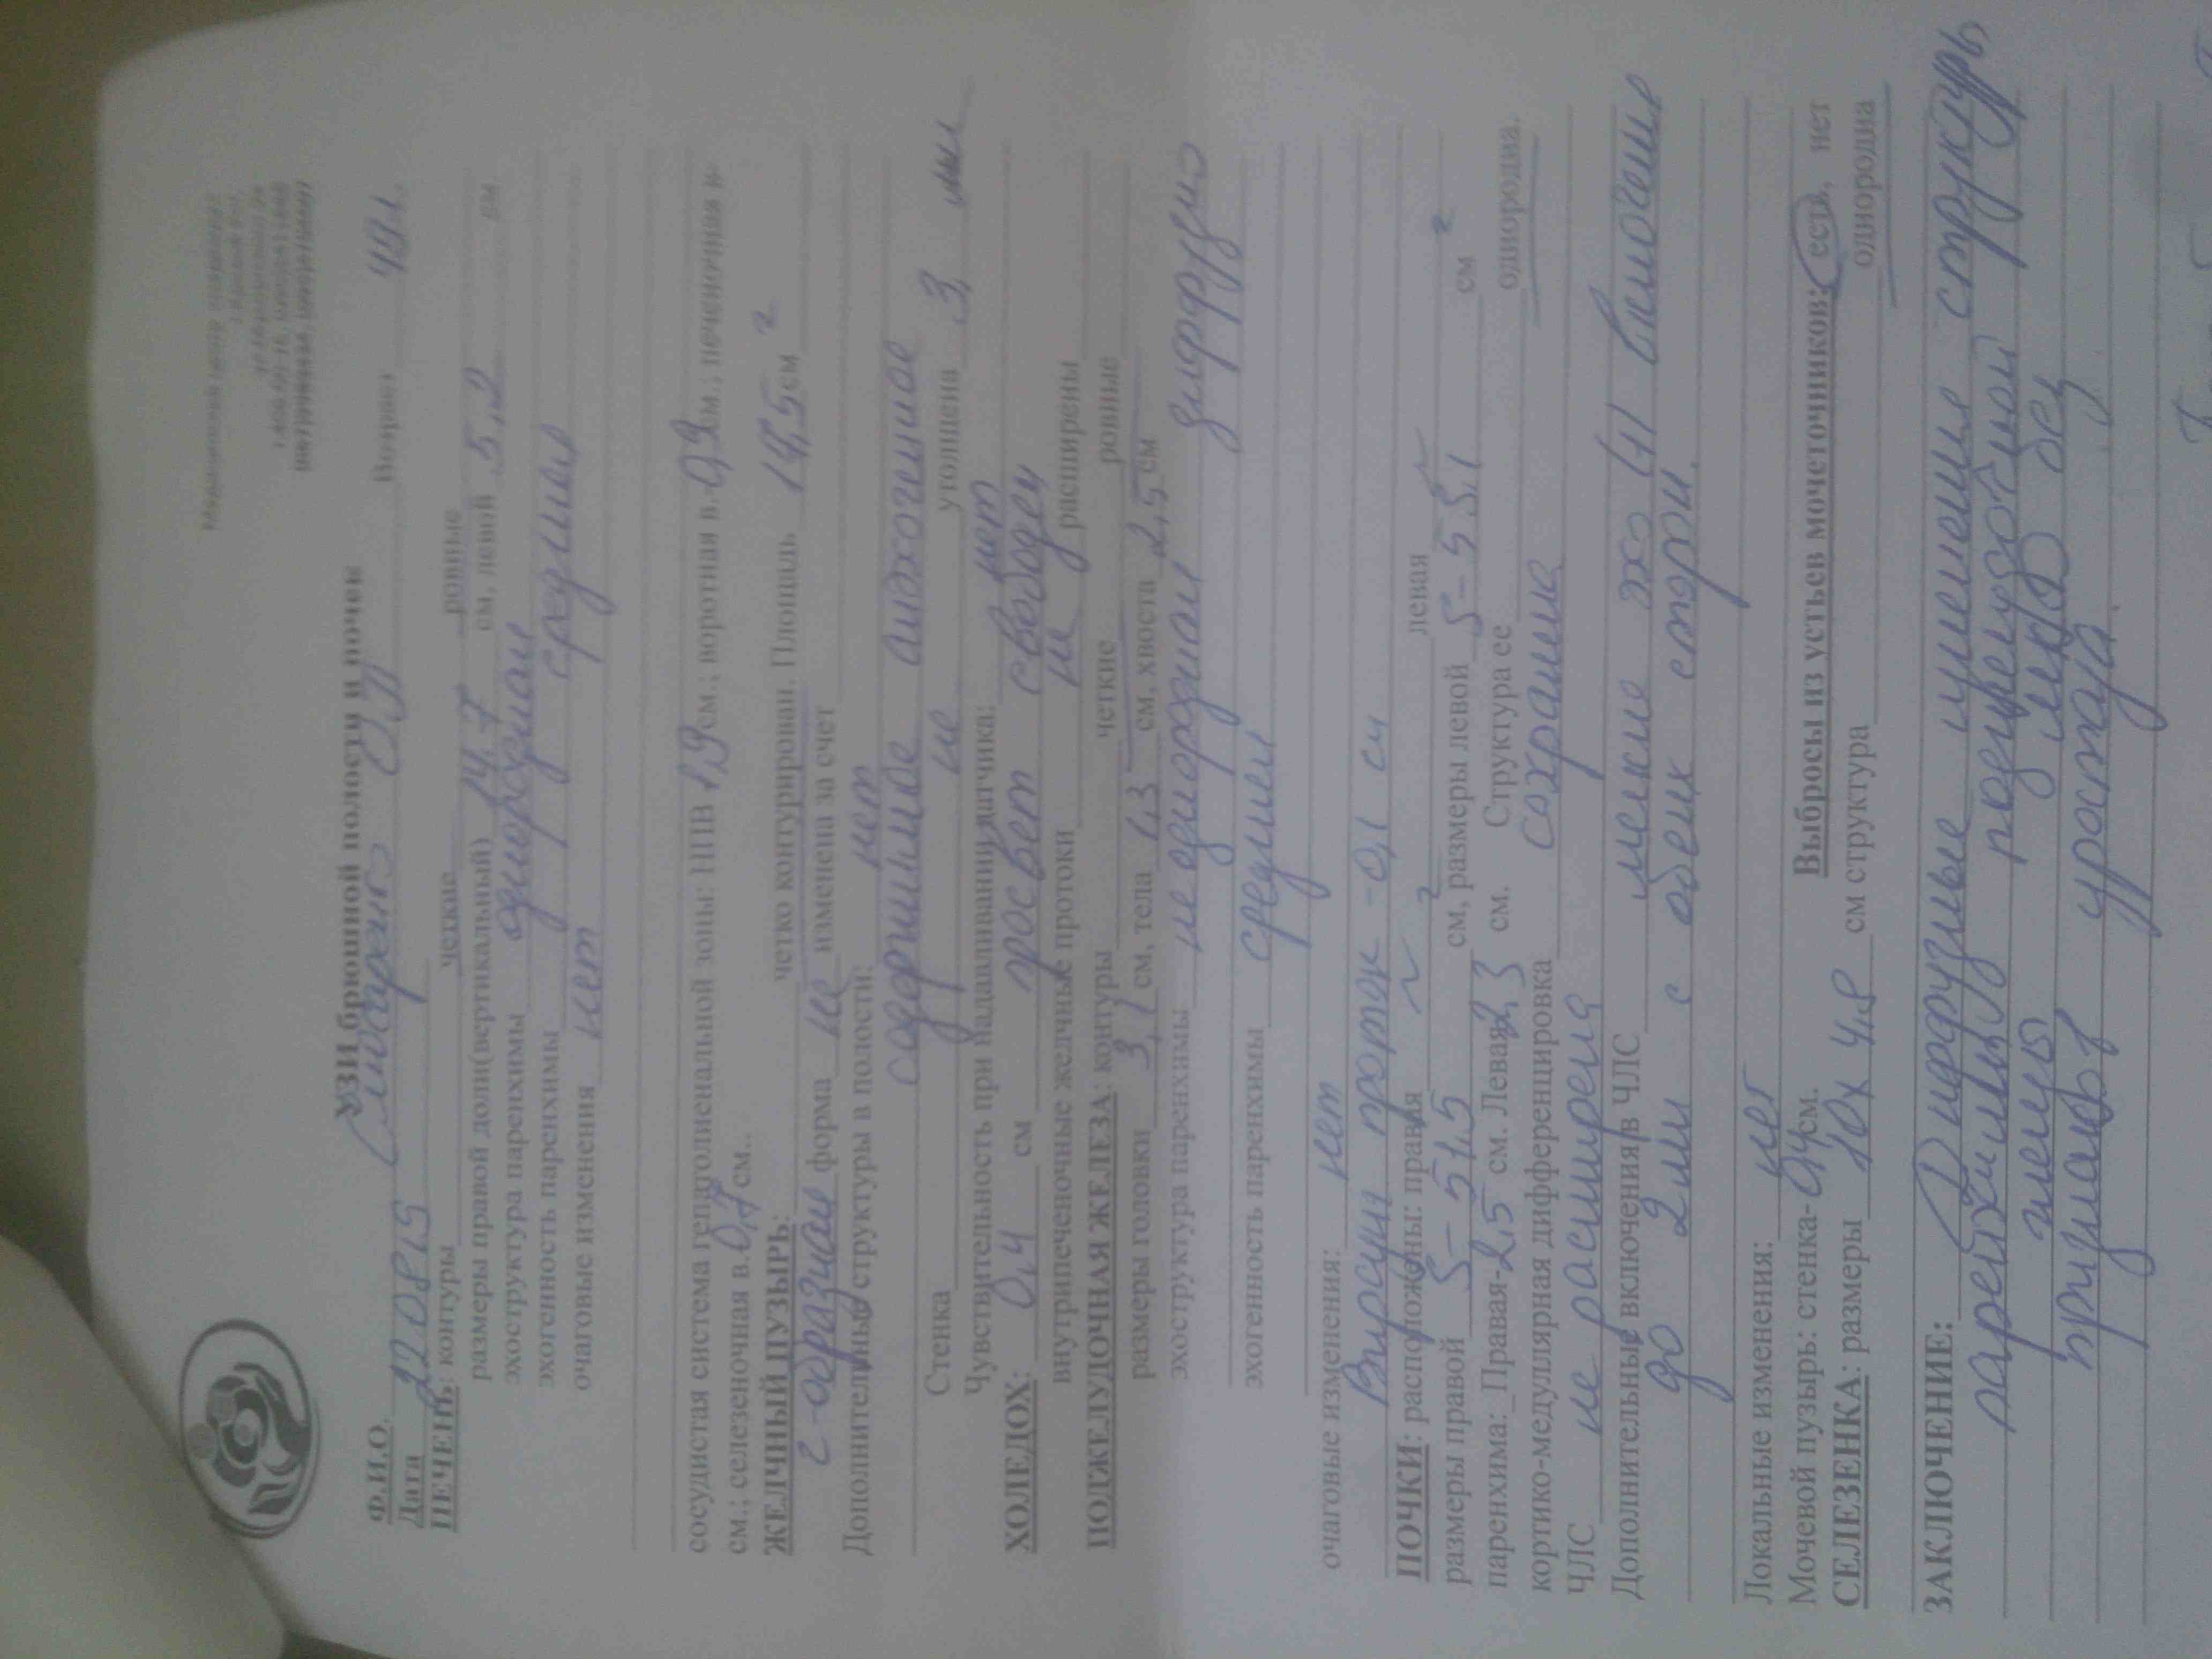 Медицинский центр
УЗИ брюшной полости и почек
Ф.И.О. Возраст
Дата 22 08 15
ПЕЧЕНЬ: контуры четкие ровные
размеры правой доли(вертикальный) 14,7 см, левой 5,2 см
эхоструктура паренхимы однородная
эхогенность паренхимы средняя
очаговые изменения нет
сосудистая система гепатолиенальной зоны: НПВ 1,9 см.; воротная в. 0,9 см.; печеночная в-
см.; селезеночная в. 0,7 см..
ЖЕЛЧНЫЙ ПУЗЫРЬ: четко контурирован. Площадь см²
г-образная форма не изменена за счет
Дополнительные структуры в полости: нет
содержимое анэхогенное
Стенка не утолщена 3, мм
Чувствительность при надавливании датчика: нет
ХОЛЕДОХ: 0,4 см просвет свободен
внутрипеченочные желчные протоки не расширены
ПОДЖЕЛУДОЧНАЯ ЖЕЛЕЗА: контуры четкие ровные
размеры головки 3,1 см, тела 1,3 см, хвоста 2,5 см
эхоструктура паренхимы неоднородная диффузно
эхогенность паренхимы средней
очаговые изменения: нет
Вирсунг проток - 0,1 см
ПОЧКИ: расположены: правая левая
размеры правой S - 51,5 см, размеры левой S - 55,1 см²
паренхима: Правая- 2,5 см. Левая 2,3 см. Структура ее однородна.
кортико-медуллярная дифференцировка сохранена
ЧЛС не расширена
Дополнительные включения в ЧЛС мелкие эхо (+) включения
до 2 мм с обеих сторон.
Локальные изменения: нет
Мочевой пузырь: стенка- 0,4 см. Выбросы из устьев мочеточников: есть, нет
СЕЛЕЗЕНКА: размеры 10 х 4,8 см структура однородна
ЗАКЛЮЧЕНИЕ: Диффузные изменения структуры
паренхимы поджелудочной
железы без
признаков уростаза.